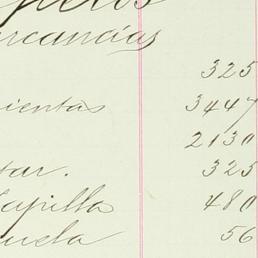 ercancías
325
ientas 3447
2130
tar. 325
apilla 480
uela 56